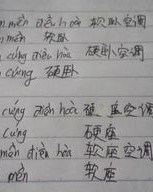 mền điều hoà 软卧空调
mền 软卧
cứng điều hòa 硬卧空调
cứng 硬卧
cứng điện hoà 硬座空调
Cứng 硬座
mền điều hòa 软座空调
mền 软座